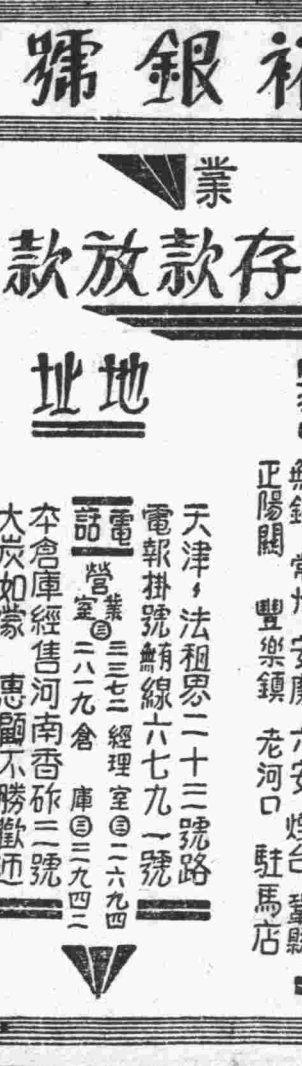 銀號
業
存款放款
正陽關 豐樂鎮 老河口 駐馬店
地址
天津·法租界二十三號路
電報掛號無線六七九一號
電話
營業室㊂三三七二 經理室㊂二六九四
㊂二八一九 倉庫㊂三九四二
本倉庫經售河南香砟三號
大炭如蒙 惠顧不勝歡迎